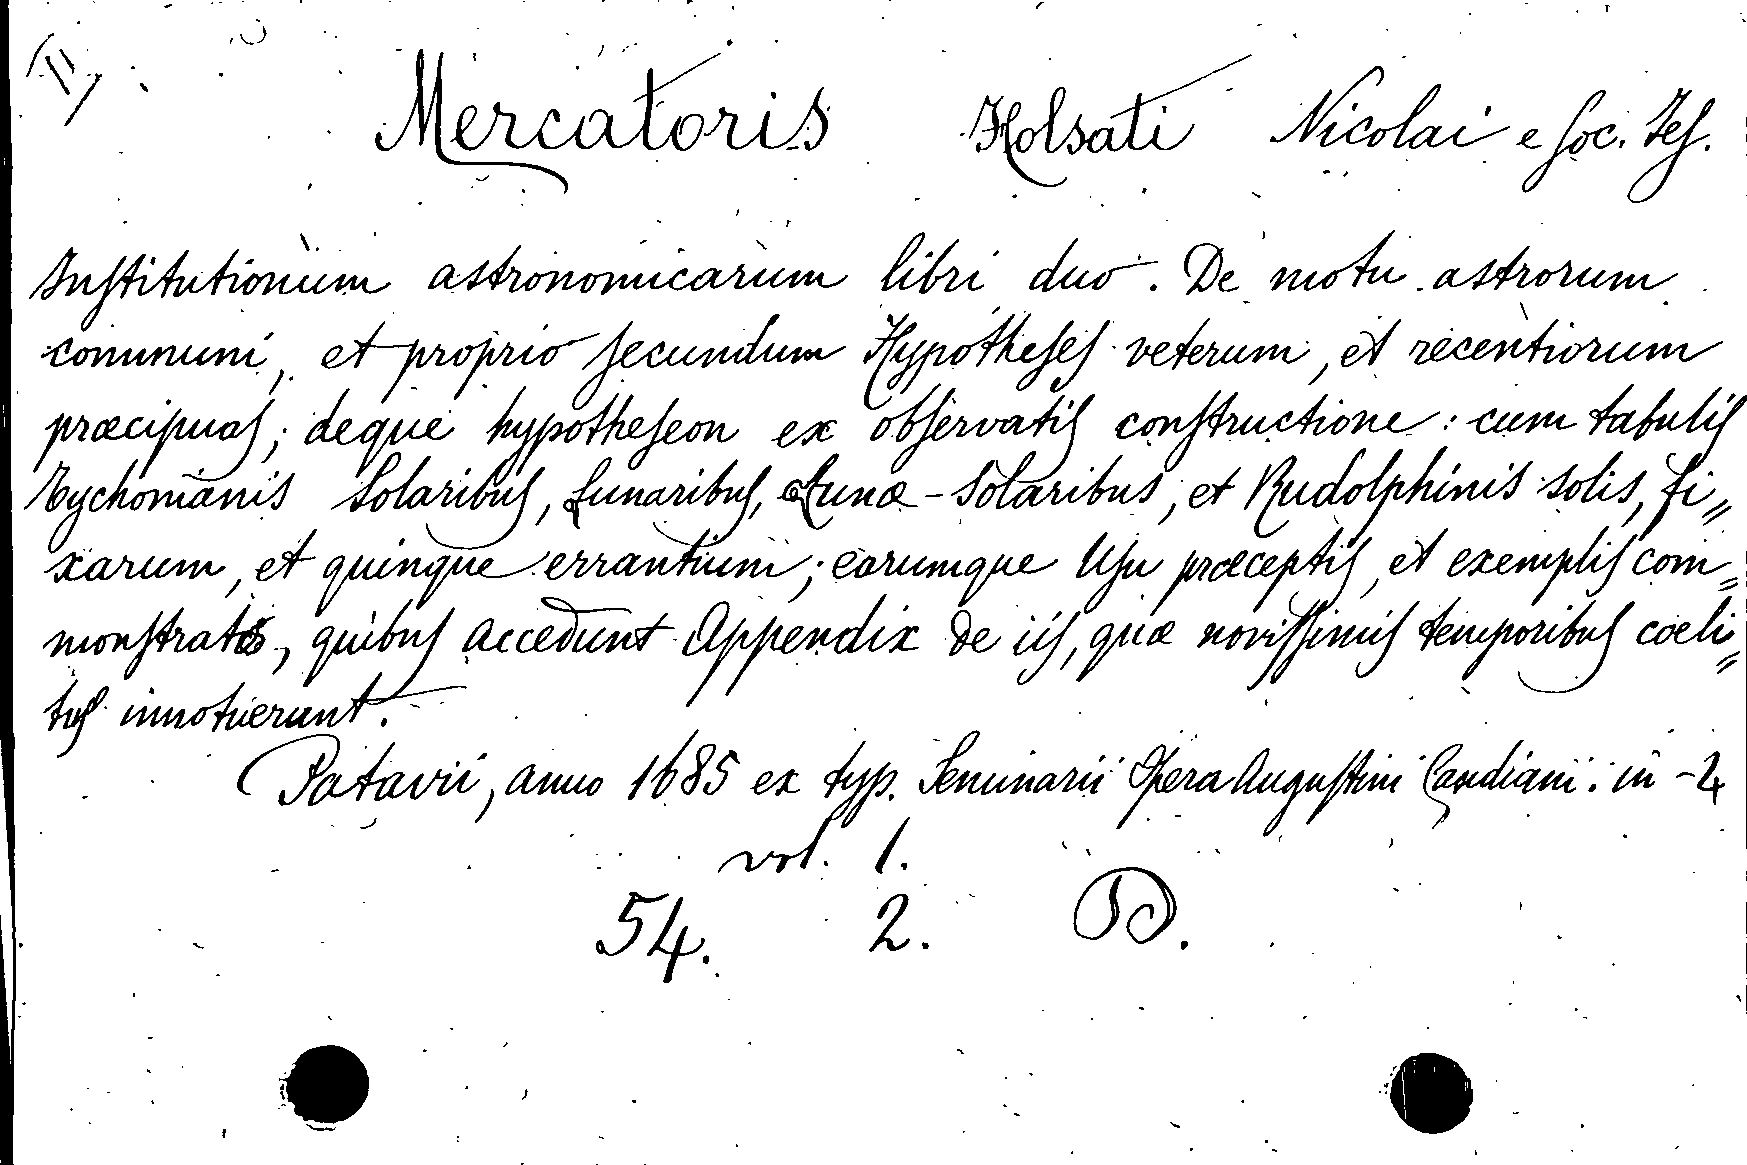 Mercatoris Holsati Nicolai e Soc. Jes.
Institutionum astronomicarum libri duo. De motu astrorum
communi, et proprio secundum Hypotheses veterum, et recentiorum
præcipuas; deque hypotheseon ex observatis constructione: cum tabulis
tychonianis Solaribus, Lunaribus, Lunæ-Solaribus, et Rudolphinis solis, fi„
xarum, et quinque errantium; earumque Usu præceptis, et exemplis com„
monstrato, quibus accedunt Appendix de iis, quæ novissimis temporibus coeli„
tus innotuerunt.
Patavii, anno 1685 ex typ. Seminarii Opera Augustini Candiani. in-4
vol. 1.
54. 2. D.